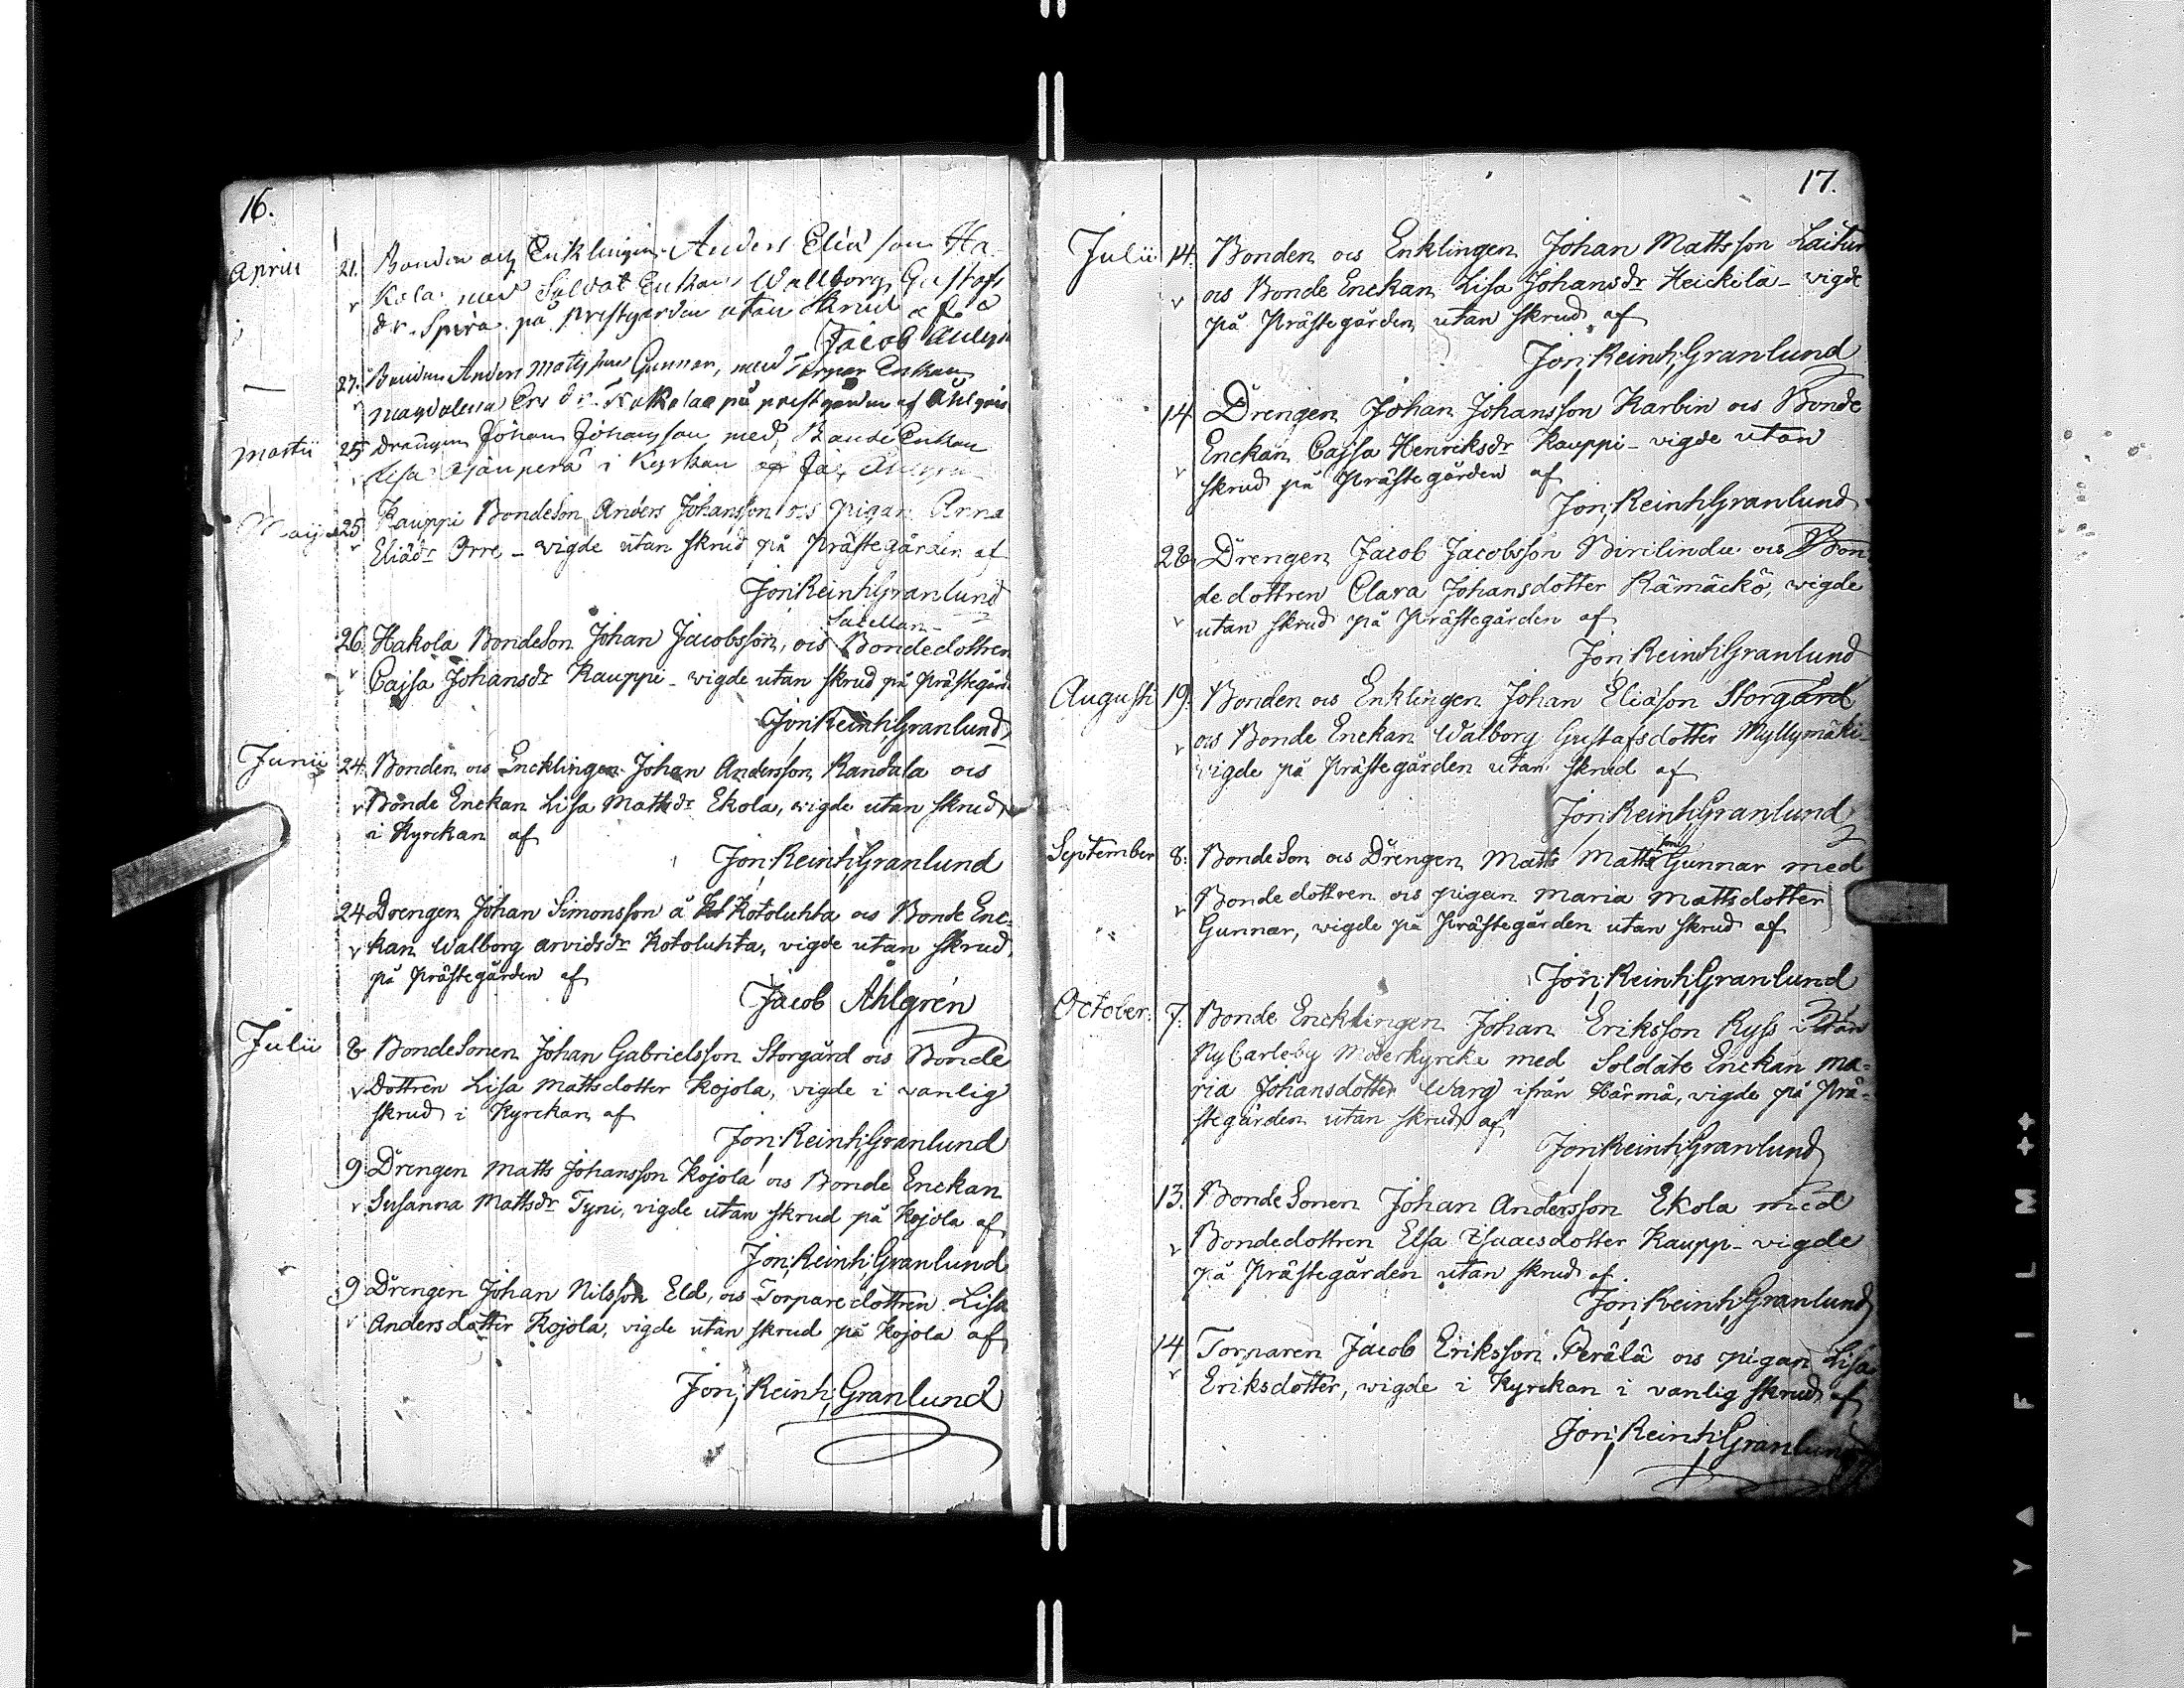 16.
Aprill 21. Bonden och Enklingen Anders Elia son Ha
Kola med Soldat Enkan Wallborg Gustafs
dr. Spira på prestgården utan skrud af
Jacob Ahlgren
27. Bonden Anders Matsson Gunnar, med Torpar Enkan
Magdalena Ers dr. Kokolaa på prestgården af Ahlgren
Martii 25 drängen Johan Johansson med Bonde Enkan
Lisa i Kyrkan af Jac Ahlgren
Maij 25 Kauppi BondeSon Anders Johansson ocs pigan Anna
Eliædr Orre - vigde utan skrud på Prästegården af
Jon: Reinh: Granlund
Sacellan
26. Hakola BondeSon Johan Jacobsson, ocs Bondedottren
Cajsa Johansdr Kauppi - vigde utan skrud på Prästegård:
Jon: Reinh: Granlund
Junii 24. Bonden ocs Encklingen Johan Andersson Randala ocs
Bonde Enckan Lisa Mattsdr Ekola, vigde utan skrud
i Kyrckan af
Jon: Reinh: Granlund
24 Drengen Johan Simonsson å Kotoluhta ocs Bonde Enc-
kan Walborg Arvidsdr Kotoluhta, vigde utan skrud
på Prästegården af
Jacob Ahlgrén
Julii 8 BondeSonen Johan Gabrielsson Storgård ocs Bonde
Dottren Lisa Mattsdotter Kojola, vigde i vanlig
skrud i Kyrckan af
Jon: Reinh: Granlund
9 Drengen Matts Johansson Kojola ocs Bonde Enckan
Susanna Mattsdr Tyni, vigde utan skrud på Kojola af
Jon: Reinh: Granlund
9 Drengen Johan Nilsson Eld, ocs Torparedottren Lisa
Andersdotter Kojola, vigde utan skrud på Kojola af
Jon: Reinh: Granlund
17.
Julii 14. Bonden ocs Enklingen Johan Mattsson Laitur
ocs Bonde Enckan Lisa Johansdr Heickilä - vigde
på Prästegården utan skrud af
Jon: Reinh: Granlund
14. Drengen Johan Johansson Karbin ocs Bonde
Enckan Cajsa Henriksdr Kauppi - vigde utan
skrud på Prästegården af
Jon: Reinh: Granlund
28. Drengen Jacob Jacobsson Birilindu ocs Bon
dedottren Clara Johansdotter Rämäckö, vigde
utan skrud på Prästegården af
Jon: Reinh: Granlund
Augusti 19. Bonden ocs Enklingen Johan Eliäson Storgård
ocs Bonde Enckan Walborg Gustafsdotter Myllymäki-
vigde på Prästegården utan skrud af
Jon: Reinh: Granlund
September 8. BondeSon ocs Drengen Matts Matts son Gunnar med
Bondedottren ocs pigan Maria Mattsdotter
Gunnar, vigde på Prästegården utan skrud af
Jon: Reinh: Granlund
October: 7. Bonde Encklingen Johan Eriksson Ryss ifrån
NyCarleby Moderkyrcka med Soldate Enckan Ma-
ria Johansdotter Warg ifrån Härmä, vigde på Prä-
stegården utan skrud af
Jon: Reinh: Granlund
13. BondeSonen Johan Andersson Ekola med
Bondedottren Elsa Isaacsdotter Kaupp - vigde
på Prästegården utan skrud af.
Jon: Reinh: Granlund
14 Torparen Jacob Eriksson Perälä ocs pigan Lisa
Eriksdotter, wigde i Kyrckan i vanlig skrud af
Jon: Reinh: Granlund
T Y A F I L M ++